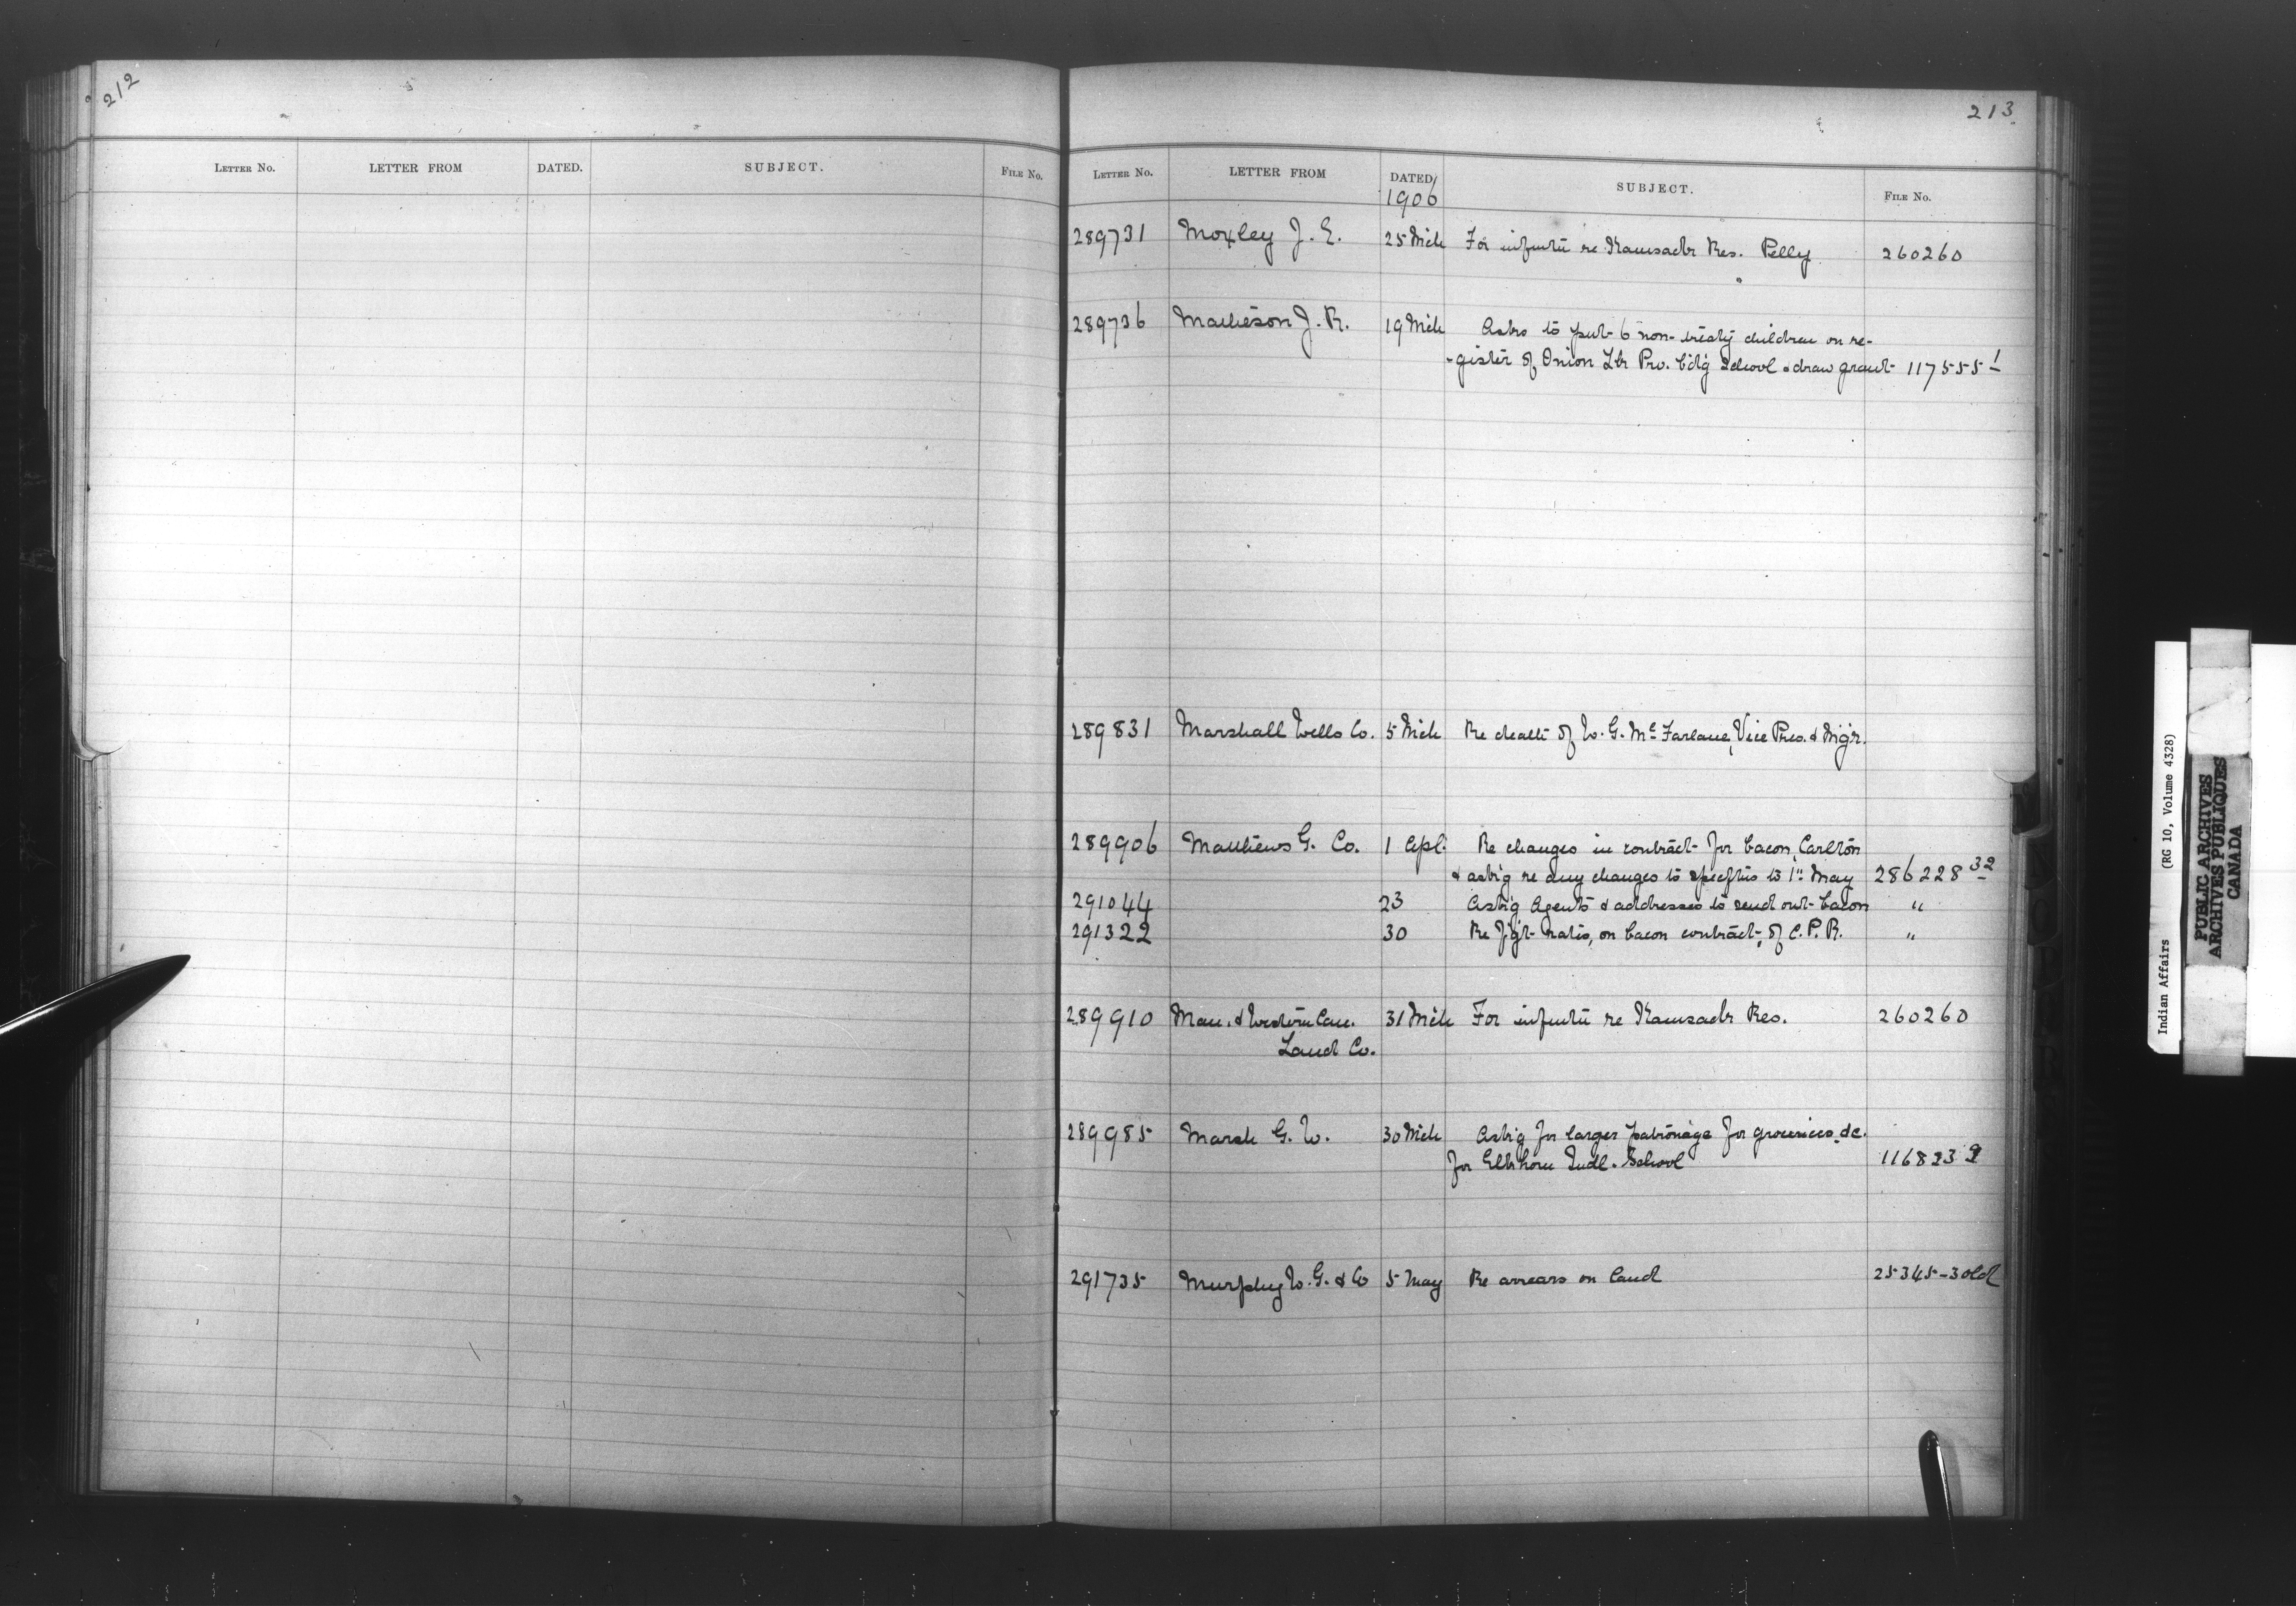 212
LETTER NO. LETTER FROM DATED. SUBJECT. FILE NO.
213
LETTER NO. LETTER FROM DATED SUBJECT. FILE NO.
1906
289731 Moxley J. E. 25 Mch For infmtn re Kamsack Res. Pelly 260260
289736 Matheson J. R. 19 Mch Asks to put 6 non-treaty children on re-
-gister of Onion Lk Pro. bdg School & draw grant 117555-1
289831 Marshall Wells Co. 5 Mch Re death of W. G. McFarlane, Vice Pres. & Mgr.
289906 Matthews G. Co. 1 Apl. Re changes in contract for bacon, Carlton
& ask'g re any changes to specftns to 1st May 286228 32
291044 23 Ask'g Agents & addresses to send out bacon "
291322 30 Re f'g't rates, on bacon contract, of C. P. R. "
289910 Man. & Western Can. 31 Mch For infmtn re Kamsack Res. 260260
Land Co.
289985 Marsh G. W. 30 Mch Ask'g for larger patronage for groceries, &c.
for Elkhorn Indl. School
291735 Murphy W. G. & Co 5 May Re arrears on land 25345-3 old
Indian Affairs (RG 10, Volume 4328)
PUBLIC ARCHIVES
ARCHIVES PUBLIQUES
CANADA